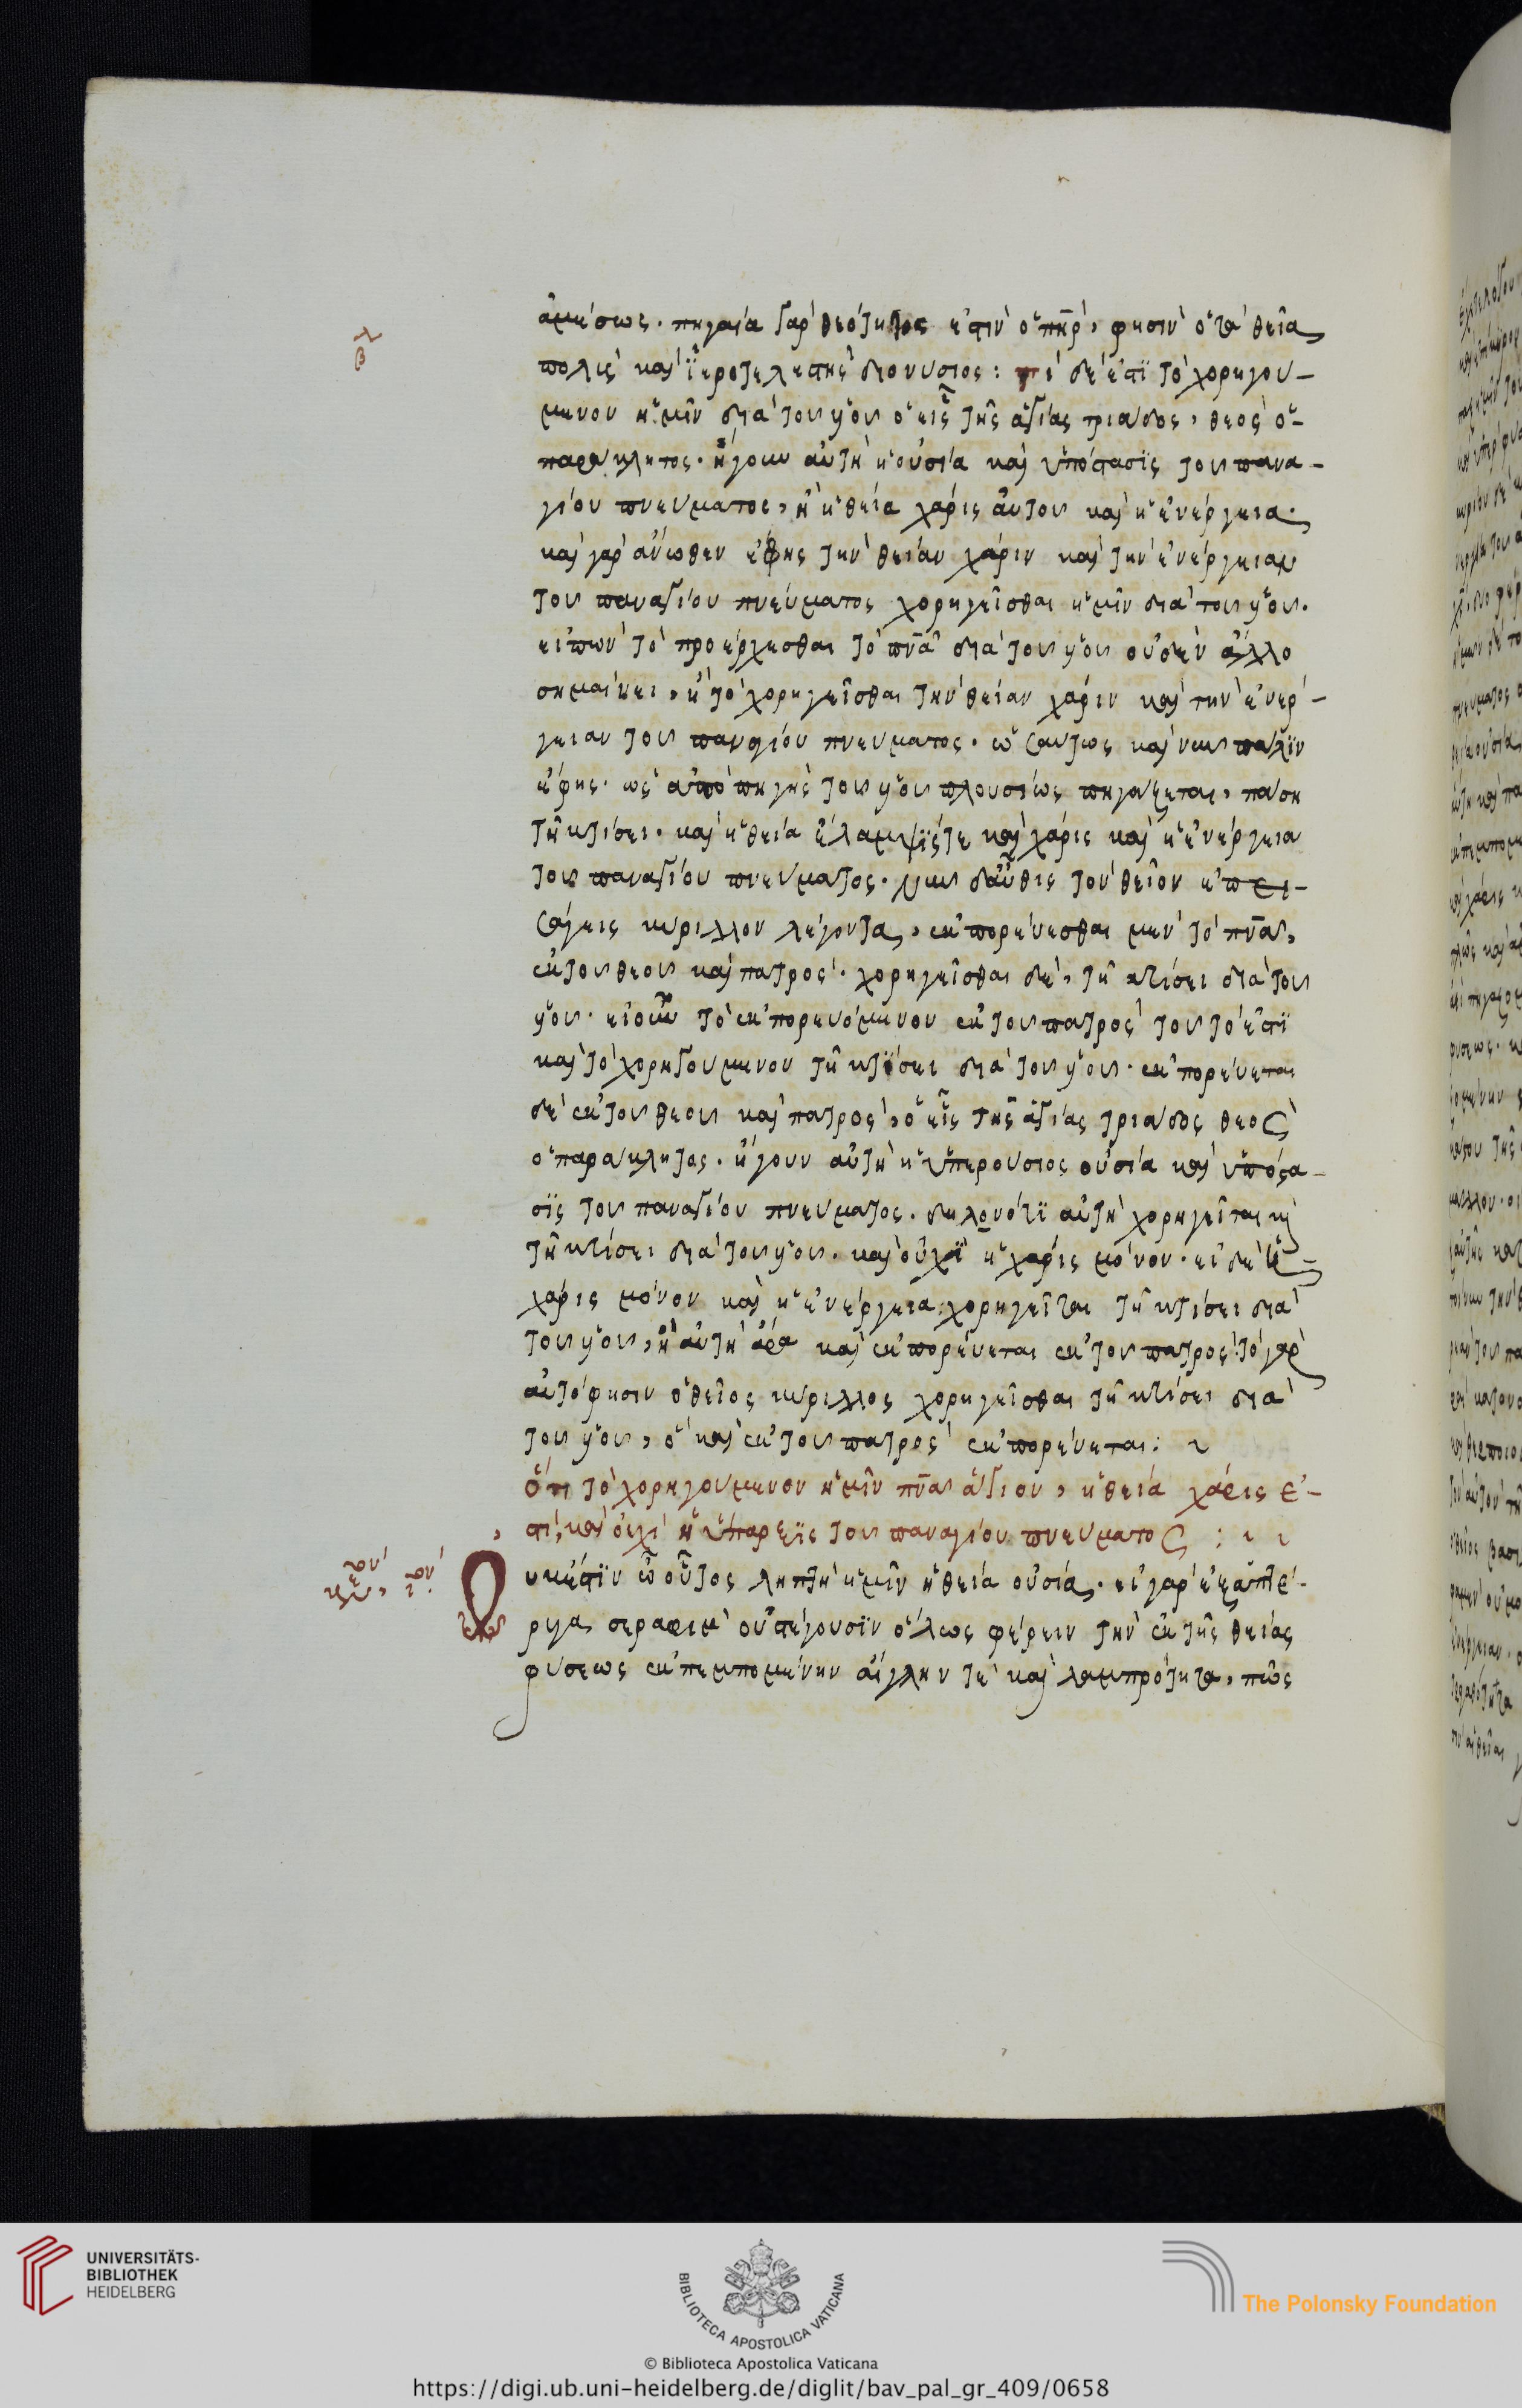 ἀμέσως. πηγαία γὰρ θεότητος ἐστὶν ὁ πῆρ, φησὶν ὁ τὰ θεῖα
πολὺς καὶ ἱεροτελεστὴς διονύσιος: τί δέ ἐστι τὸ χορηγού-
μενον ἡμῖν διὰ τοῦ υἱοῦ ὁ εἷς τῆς ἁγίας τριάδος, θεὸς ὁ
παράκλητος. ἤγουν αὐτὴ ἡ οὐσία καὶ ὑπόστασις τοῦ πανα-
γίου πνεύματος, ἢ ἡ θεία χάρις αὐτοῦ καὶ ἡ ἐνέργεια.
καὶ γὰρ ἄνωθεν ἔφης τὴν θείαν χάριν καὶ τὴν ἐνέργειαν
τοῦ παναγίου πνεύματος χορηγεῖσθαι ἡμῖν διὰ τοῦ υἱοῦ.
εἰπὼν τὸ προέρχεσθαι τὸ πνᾶ διὰ τοῦ υἱοῦ οὐδὲν ἄλλο
σημαίνει, ἢ τὸ χορηγεῖσθαι τὴν θείαν χάριν καὶ τὴν ἐνέρ-
γειαν τοῦ παναγίου πνεύματος. ὡσαύτως καὶ νῦν πάλιν
ἔφης. ὡς ἀπὸ πηγῆς τοῦ υἱοῦ πλουσίως πηγάζεται, πάσῃ
τῇ κτίσει. καὶ ἡ θεία ἔλαμψίς τε καὶ χάρις καὶ ἡ ἐνέργεια
τοῦ παναγίου πνεύματος. νῦν δαῦθις τὸν θεῖον ἐπει-
σάγεις κύριλλον λέγοντα, ἐκπορεύεσθαι μὲν τὸ πνᾶ,
ἐκ τοῦ θεοῦ καὶ πατρός. χορηγεῖσθαι δὲ, τῇ κτίσει διὰ τοῦ
υἱοῦ. εἰ οὖν τὸ ἐκπορευόμενον ἐκ τοῦ πατρὸς τοῦτό ἐστι
καὶ τὸ χορηγούμενον τῇ κτίσει διὰ τοῦ υἱοῦ. ἐκπορεύεται
δὲ ἐκ τοῦ θεοῦ καὶ πατρὸς, ὁ εἷς τῆς ἁγίας τριάδος θεὸς
ὁ παράκλητος. ἤγουν αὐτὴ ἡ ὑπερούσιος οὐσία καὶ ὑπόστα-
σις τοῦ παναγίου πνεύματος. δηλονότι αὐτὴ χορηγεῖται καὶ
τῇ κτίσει διὰ τοῦ υἱοῦ. καὶ οὐχὶ ἡ χάρις μόνον. εἰ δὲ ἡ
χάρις μόνον καὶ ἡ ἐνέργεια χορηγεῖται τῇ κτίσει διὰ
τοῦ υἱοῦ, ἢ αὐτὴ ἄρα καὶ ἐκπορεύεται ἐκ τοῦ πατρός. τὸ γὰρ
αὐτό φησιν ὁ θεῖος κύριλλος χορηγεῖσθαι τῇ κτίσει διὰ
τοῦ υἱοῦ, ὃ καὶ ἐκ τοῦ πατρὸς ἐκπορεύεται:
Ὅτι τὸ χορηγούμενον ἡμῖν πνᾶ ἅγιον, ἡ θεία χάρις ἐ-
στί, καὶ οὐχὶ ἡ ὕπαρξις τοῦ παναγίου πνεύματος:
Οὐκ ἔστιν ὦ οὗτος ληπτὴ ἡμῖν ἡ θεία οὐσία. εἰ γὰρ ἑξαπτέ-
ρυγα σεραφὶμ οὐ στέγουσιν ὅλως φέρειν τὴν ἐκ τῆς θείας
φύσεως ἐκπεμπομένην αἴγλην τὲ καὶ λαμπρότητα, πῶς
UNIVERSITÄTS-
BIBLIOTHEK
HEIDELBERG
BIBLIOTECA APOSTOLICA VATICANA
The Polonsky Foundation
© Biblioteca Apostolica Vaticana
https://digi.ub.uni-heidelberg.de/diglit/bav_pal_gr_409/0658